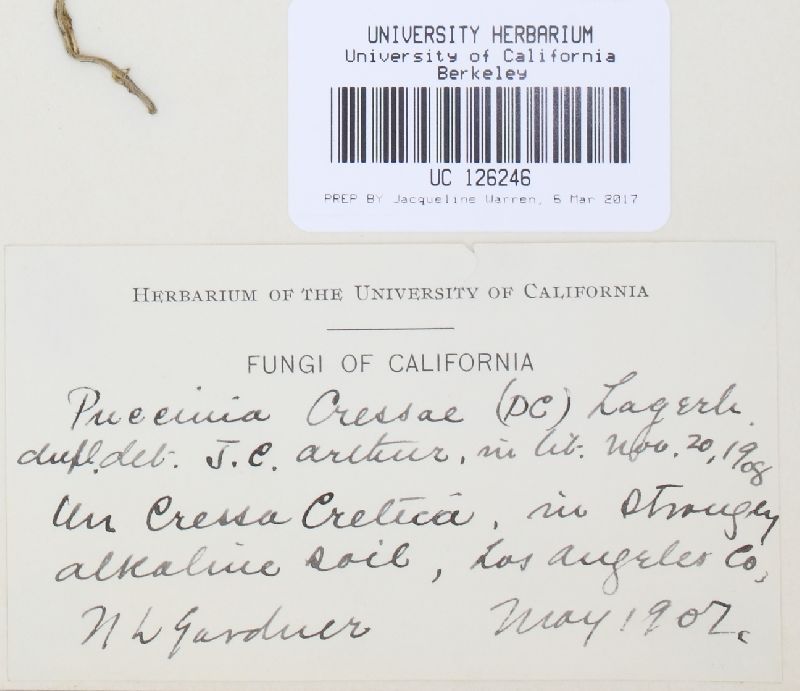 UNIVERSITY HERBARIUM
University of California
Berkeley
UC 126246
PREP BY Jacqueline Warren, 6 Mar 2017
HERBARIUM OF THE UNIVERSITY OF CALIFORNIA
FUNGI OF CALIFORNIA
Puccinia Cressae (DC) Lagerh.
dupl. det. J.C. Arthur, in lit. Nov. 20, 1908
On Cressa Cretica, in strongly
alkaline soil, Los Angeles Co,
N L Gardner May 1907.